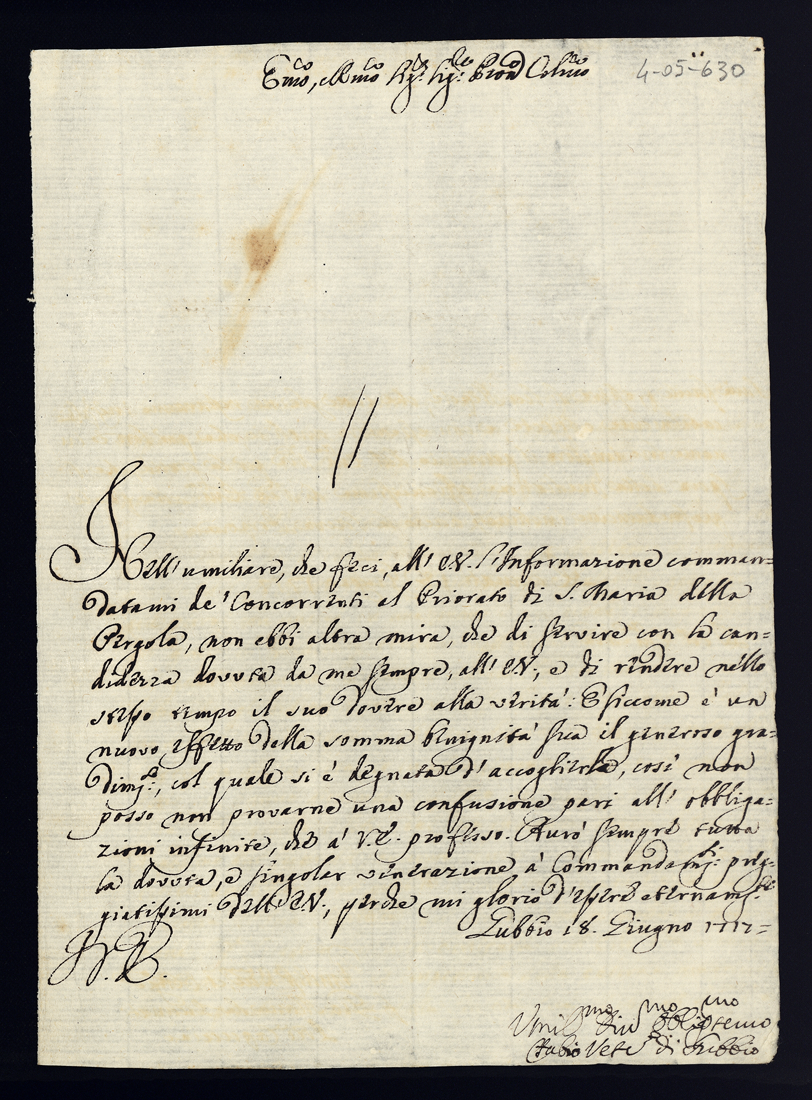 Em̃o, e Rmo Sigr Sigr Pron Colmo
4-05-630
Nell' umiliare, che feci, all' E.V. l'Informazione comman=
datami de' Concorrenti al Priorato di S. Maria della
Pergola, non ebbi altra mira, che di servire con la can=
didezza dovuta da me sempre, all' E.V., e di rendere nello
stesso tempo il suo dovere alla verità: E siccome è un
nuovo effetto della somma benignità sua il generoso gra=
dimto, col quale si è degnata d'accoglierla, così non
posso non provarne una confusione pari all' obbliga=
zioni infinite, che à V.E. professo. Aurò sempre tutta
la dovuta, e singolar venerazione à Commandamti preg=
giatissimi dell' E.V., perche mi glorio d'essere eternamte
Gubbio 18. Giugno 1717=
D. V. E.
Umilmo Divmo Obbligmo servo
Fabio Vesco di Gubbio